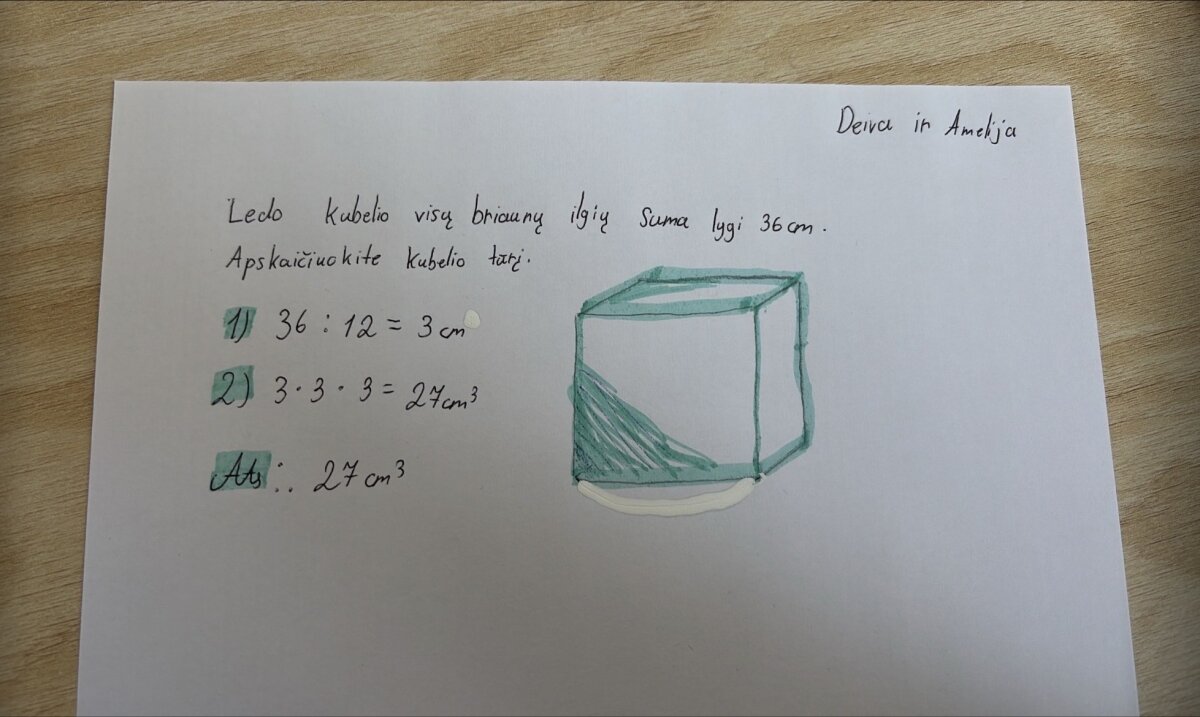 Deiva ir Amelija
Ledo kubelio visų briaunų ilgių suma lygi 36 cm.
Apskaičiuokite kubelio tūrį.
1) 36 : 12 = 3 cm
2) 3 · 3 · 3 = 27 cm³
Ats.: 27 cm³